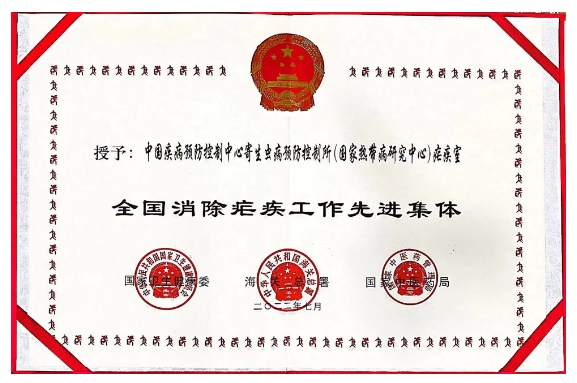 授予：中国疾病预防控制中心寄生虫病预防控制所(国家热带病研究中心)疟疾室
全国消除疟疾工作先进集体
国家卫生健康委 海关总署 国家中医药局
二〇二二年七月